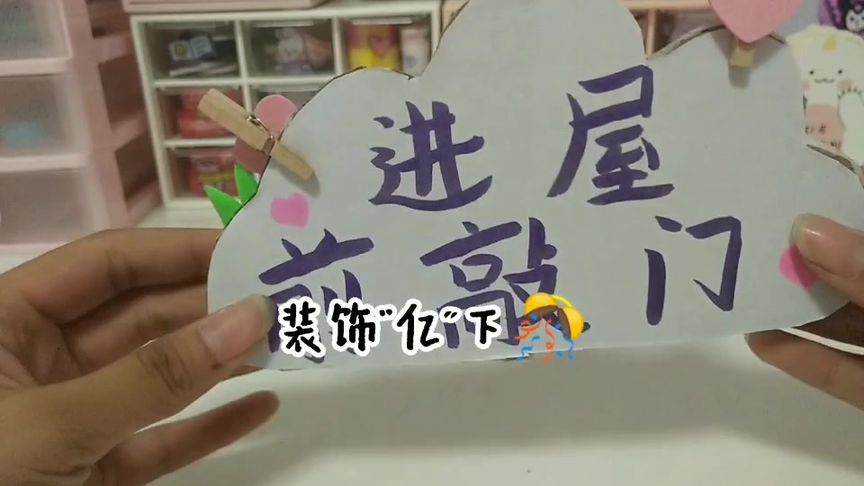 进屋
前敲门
装饰“亿”下